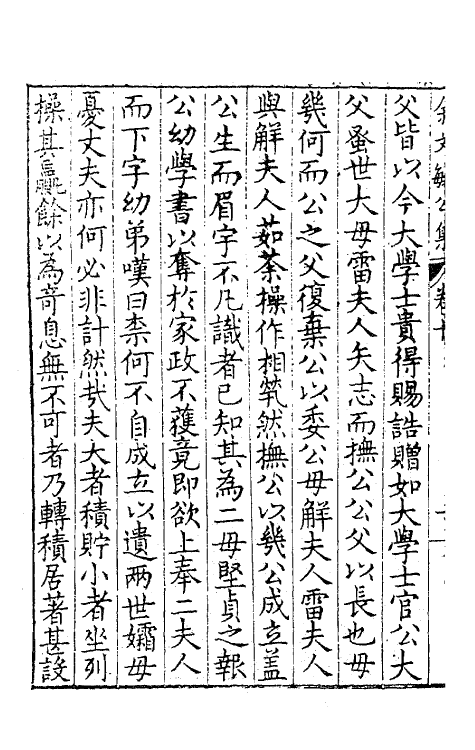 父皆以今大學士貴得賜誥贈如大學士官公大
父蚤世大母雷夫人矢志而撫公公父以長也毋
幾何而公之父復棄公以委公母解夫人雷夫人
與解夫人茹荼操作相煢然撫公以幾公成立盖
公生而眉宇不凡識者已知其為二母堅貞之報
公幼學書以奪於家政不獲竟即欲上奉二夫人
而下字幼弟嘆曰柰何不自成立以遺兩世孀母
憂丈夫亦何必非計然㢤夫大者積貯小者坐列
操其贏餘以為竒息無不可者乃轉積居著甚設